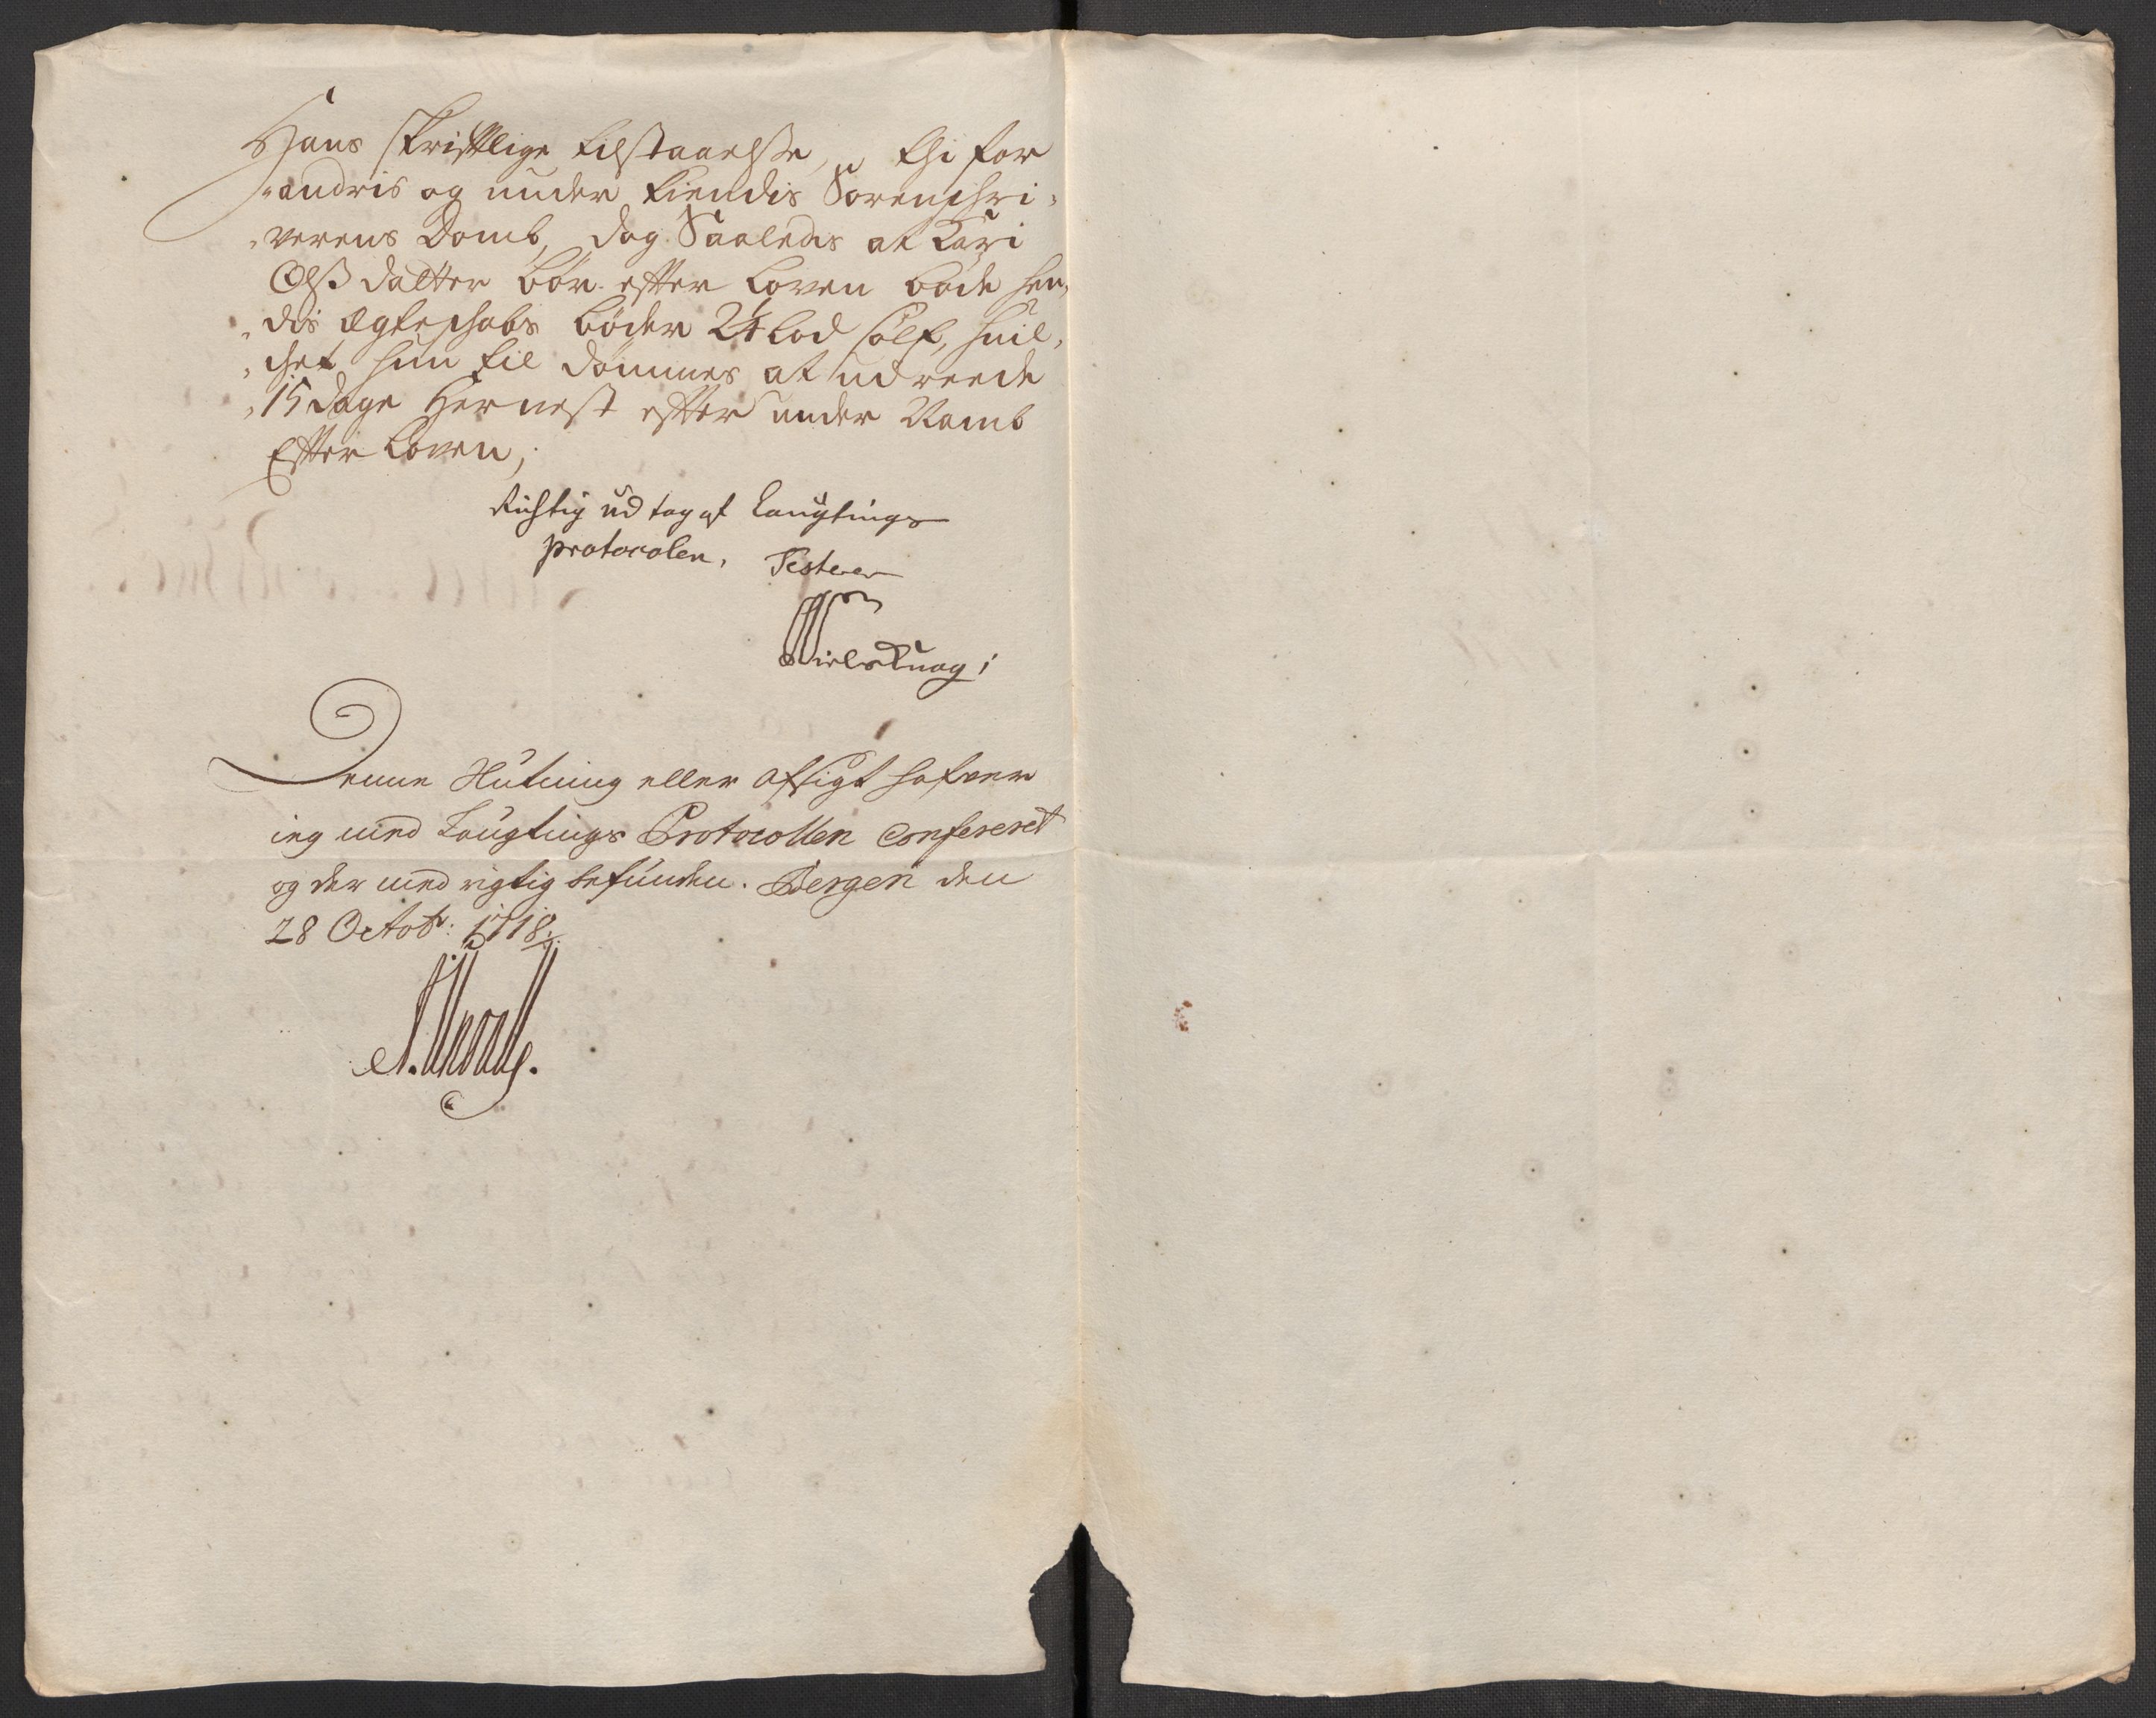 Hans skriftlige tilstaaelße, thi for
„andris og under kiendis Sorenschri„
„verens Domb, dog Saaledis at Kari
Olß datter bør efter Loven bøde hen„
„dis Egteschabs bøder 2¼ Lod sølf, huil„
„chet hun til dømmes at udreede
„15 dage Hernest efter under Namb
Efter Loven,
Richtig udtog af Laugtings
protocolen, Tester
Niels Knag
Denne Slutning eller afsigt hafver
ieg med Laugtings Protocollen Confereret
og der med rigtig befunden. Bergen den
28 Octobr: 1718